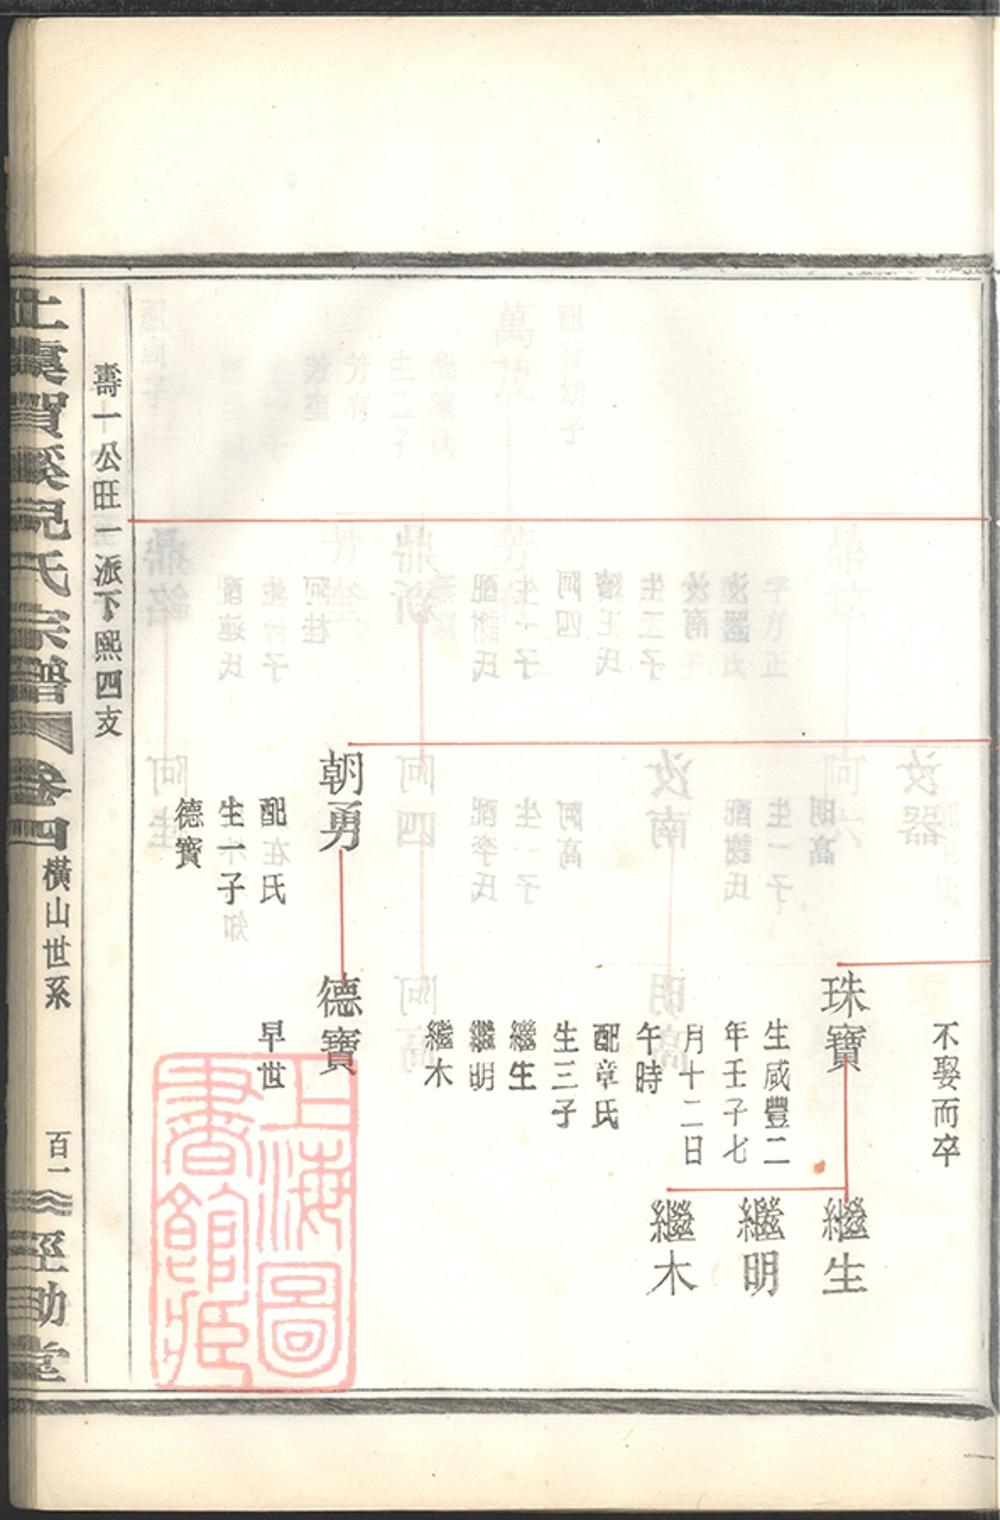 不娶而卒
珠寶
生咸豐二
年壬子七
月十二日
午時
配章氏
生三子
繼生
繼明
繼木
繼生
繼明
繼木
朝勇
配在氏
生一子
德寶
德寶
早世
壽一公旺一派下熙四支
上虞賀溪倪氏宗譜
卷四
橫山世系
百一
經助堂
上海圖書館藏